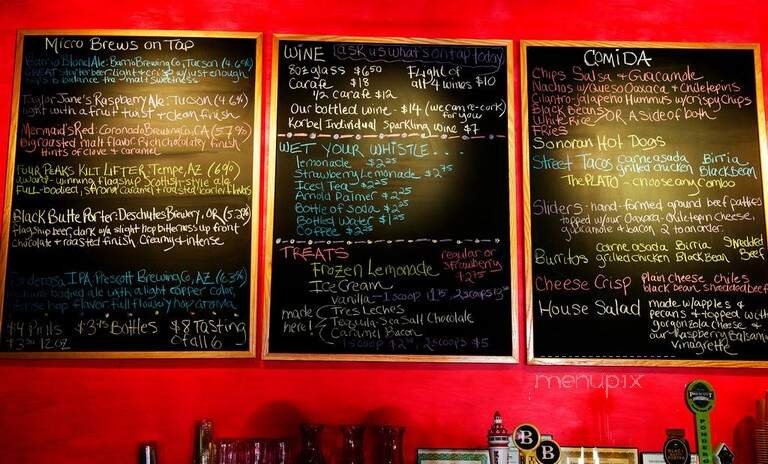 Micro Brews on Tap
Barrio Blond Ale: Barrio Brewing Co, Tucson (4.6%)
GREAT starter beer light + crisp w/just enough
hops to balance the malt sweetness
Taylor Jane's Raspberry Ale: Tucson (4.6%)
light with a fruit twist + clean finish
Mermaid's Red: Coronado Brewing Co, CA (5.7%)
Big roasted malt flavor. Rich chocolatey finish
hints of clove + caramel
FOUR PEAKS KILT LIFTER: Tempe, AZ (6%)
award-winning flagship Scottish-style ale
FULL-bodied, strong caramel + roasted
Black Butte Porter: Deschutes Brewery, OR (5.2%)
flagship beer, dark w/a slight hop bitterness up front
chocolate + roasted finish Creamy + intense
Ponderosa IPA: Prescott Brewing Co, AZ (6.3%)
bodied ale with a light copper color,
hop flavor full flowery hop aroma
$4 Pints $3.75 Bottles $8 Tasting
12oz of all 6
WINE ask us what's on tap today
8oz glass $6.50 Flight of
Carafe $18 all 4 wines $10
1/2 carafe $12
Our bottled wine - $14 (we can re-cork)
for you
Korbel Individual sparkling wine $7
WET YOUR WHISTLE...
lemonade $2.25
Strawberry Lemonade $2.75
Iced Tea $2.25
Arnold Palmer $2.25
Bottle of Soda $2.25
Bottled Water $1.25
Coffee $2.25
TREATS regular or
Frozen Lemonade strawberry
$2.75
Ice Cream
vanilla - 1 scoop 2 scoops
made Tres Leches
here! Tequila Sea Salt Chocolate
Caramel Bacon
1 scoop 2 scoops $5
COMIDA
Chips Salsa + Guacamole
Nachos w/queso Oaxaca + Chiletepins
Cilantro-Jalapeño Hummus w/crispy Chips
Black Beans
White Rice OR A side of both
FRIES
Sonoran Hot Dogs
Street Tacos carne asada Birria
grilled chicken Black bean
The PLATO - choose any Combo
Sliders - hand-formed ground beef patties
topped w/our Oaxaca-chiletepin cheese,
guacamole + bacon 2 to an order.
carne asada Birria Shredded
Burritos grilled chicken Black Bean Beef
Cheese Crisp plain cheese chiles
black bean shredded beef
House Salad made w/apples &
pecans + topped with
gorgonzola cheese &
our Raspberry Balsamic
vinagrette
menupix
B
B